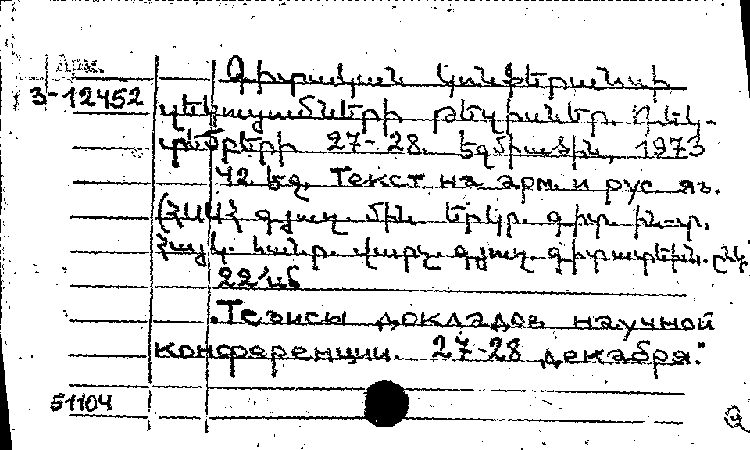 Арм.
3-12452
Գիտական կոնֆերանսի
զեկուցումների թեզիսներ. Դեկ-
տեմբերի 27-28. Եջմիածին, 1973
42 եջ. Текст на арм. и рус яз.
(ՀՍՍՀ գյուղ. մին. Երկր. գիտ. ին-տ.
Հայկ. հանր. վարչ. գյուղ. գիտատեխն. ընկ.
22/սմ
„Тезисы докладов научной
конференции. 27-28 декабря."
51104